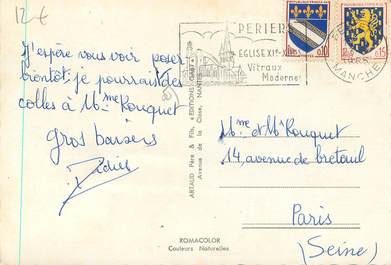 12 €
PERIERS
EGLISE XIe-X
Vitraux
Modernes
MANCHE
0,10
0,15
J'espère vous voir poser
bientôt je pourrais des
colles à Mme Rouquet
gros baisers
Didier
ARTAUD Père & Fils, "EDITIONS GABY"
Avenue de la Close, NANTES
Mme et Mr Rouquet
14, avenue de breteuil
Paris
(Seine)
ROMACOLOR
Couleurs Naturelles